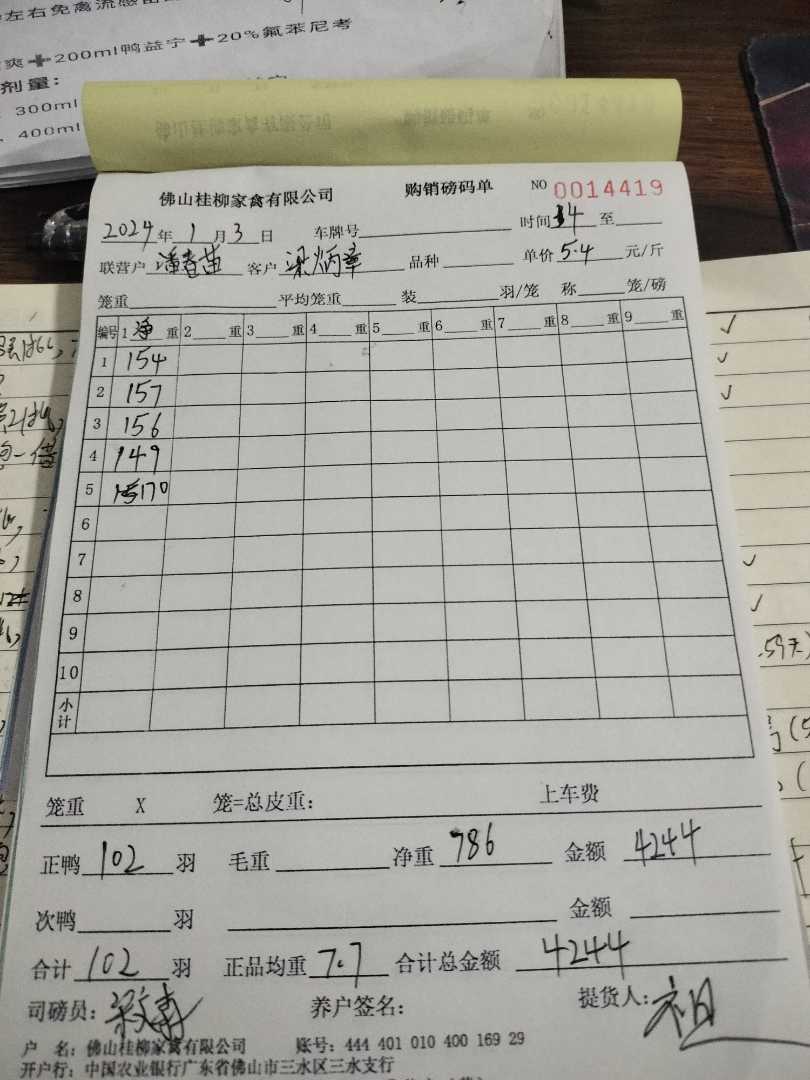 左右免禽流感
爽+200ml鸭益宁+20%氟苯尼考
剂量:
300ml
400ml
佛山桂柳家禽有限公司 购销磅码单 NO 0014419
2024年1月3日 车牌号 时间 14 至
联营户 潘春苗 客户 梁炳章 品种 单价 5.4 元/斤
笼重 平均笼重 装 羽/笼 称 笼/磅
编号 1 净 重 2 重 3 重 4 重 5 重 6 重 7 重 8 重 9 重
1 154
2 157
3 156
4 149
5 170
6
7
8
9
10
小计
笼重 X 笼=总皮重: 上车费
正鸭 102 羽 毛重 净重 786 金额 4244
次鸭 羽 金额
合计 102 羽 正品均重 7.7 合计总金额 4244
司磅员: 养户签名: 提货人: 祖
户 名: 佛山桂柳家禽有限公司 账号: 444 401 010 400 169 29
开户行: 中国农业银行广东省佛山市三水区三水支行